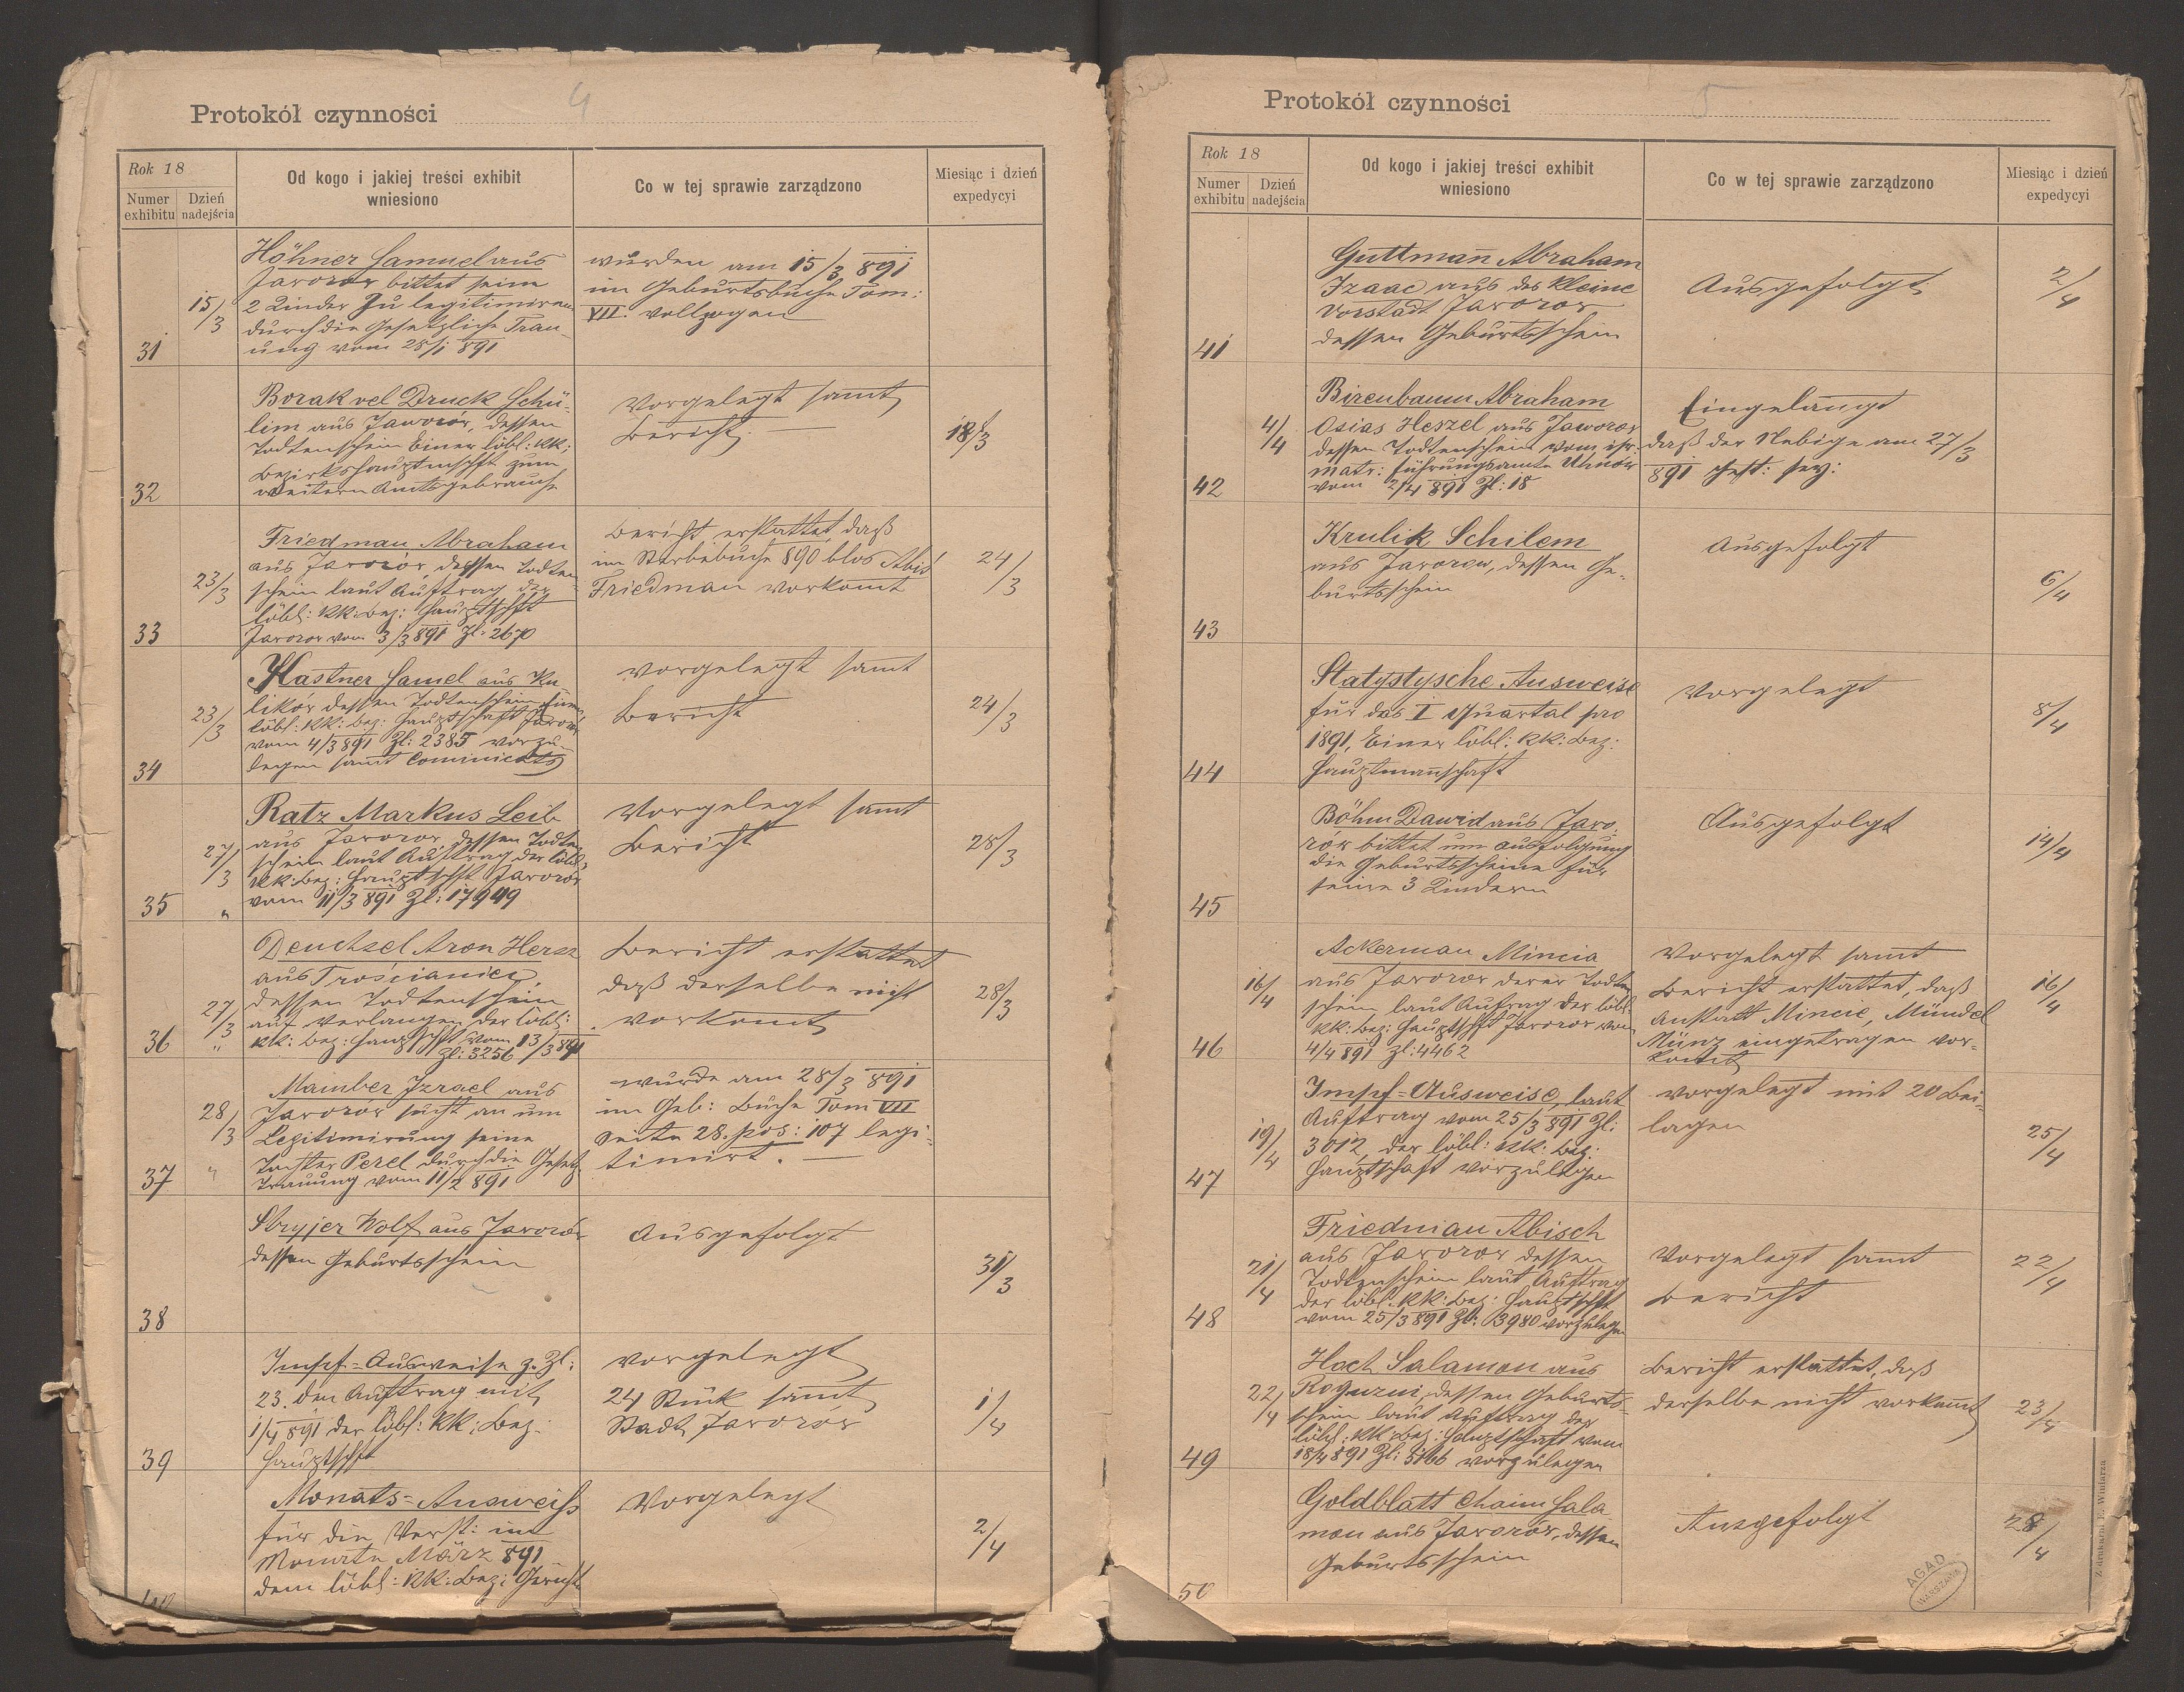 4
Protokół czynności
Rok 18
Numer exhibitu
Dzień nadejścia
Od kogo i jakiej treści exhibit wniesiono
Co w tej sprawie zarządzono
Miesiąc i dzień expedycyi
31
15/3
Höhner Samuel aus
Jaworow bittet seine
2 Kinder zu legitimiren
durch die Gesetzliche Trau-
ung vom 28/1 891
wurden am 15/3 891
im Geburtsbuche Tom:
VII. vollzogen
32
Borak vel Druck Schü-
lim aus Jaworów, dessen
Todtenschein Einer löbl: kk:
Bezirkshauptmschft zum
weitern Amtsgebrauche
Vorgelegt samt
Bericht.
18/3
33
23/3
Friedman Abraham
aus Jaworów, dessen Todten-
schein laut Auftrag der
löbl: kk: Bez: Hauptschft
Jaworow vom 3/3 891 Zl: 2670
Bericht erstattet, daß
im Sterbebuche 890 blos Abisch
Friedman vorkomt
24/3
34
23/3
Kastner Samel aus Ku-
likór dessen Todtenschein Einer
löbl: kk: Bez: Hauptschaft Jaworów
vom 4/3 891 Zl: 2385 vorzu-
legen samt Cominicats
Vorgelegt samt
Bericht
24/3
35
27/3
"
Ratz Markus Leib
aus Jaworow, dessen Todten
schein laut Auftrag der löbl:
kk: Bez: Hauptschft Jaworów
vom 11/3 891 Zl: 17949
Vorgelegt samt
Bericht
28/3
36
27/3
"
Deuchsel Aron Hersz
aus Trościaniec,
dessen Todtenschein
auf Verlangen der löbl:
kk: Bez: Hauptschft vom 13/3 891
Zl: 3256
Bericht erstattet
daß derselbe nicht
vorkomt
28/3
37
28/3
"
Mamber Izrael aus
Jaworów sucht an um
Legitimirung seine
Tochter Perel durch die Gesetz
Trauung vom 11/2 891
wurde am 28/3 891
im Geb: Buche Tom VII
Seite 28. pos: 107 legi-
timirt.
38
Stryjer Wolf aus Jaworów
dessen Geburtsschein
Ausgefolgt
31/3
39
Impf-Ausweise z. Zl:
23. den Auftrag mit
1/4 891 der löbl: kk: Bez:
Hauptschft
vorgelegt
24 Stück samt
Stadt Jaworów
1/4
40
Monats-Ausweiss
für die Verst: im
Monate März 891
dem löbl: kk: Bez: Gericht
Vorgelegt
2/4
5
Protokół czynności
Rok 18
Numer exhibitu
Dzień nadejścia
Od kogo i jakiej treści exhibit wniesiono
Co w tej sprawie zarządzono
Miesiąc i dzień expedycyi
41
Guttman̅ Abraham
Izaac aus der Kleine
Vorstadt Jaworow
dessen Geburtsschein
Ausgefolgt
2/4
42
4/4
Birenbaum Abraham
Osias Heszel aus Jaworow
dessen Todtenschein vom isr:
matr: Führungsamte Uhnów
vom 2/4 891 Zl: 18
Eingelangt
daß der Nebige am 27/3
891 gest: sey:
43
Krulik Schilem
aus Jaworow, dessen Ge-
burtsschein
Ausgefolgt
6/4
44
Statystysche Ausweise
für das I Quartal pro
1891, Einer löbl: kk: Bez:
Hauptmannschaft
Vorgelegt
8/4
45
Böhm Dawid aus Jawo-
rów bittet um Ausfolgung
die Geburtsscheine für
seine 3 Kindern
Ausgefolgt
14/4
46
16/4
Ackerman Mincia
aus Jaworow derer Todten
schein laut Auftrag der löbl:
kk: Bez: Hauptschft Jaworow vom
4/4 891 Zl: 4462
Vorgelegt samt
Bericht erstattet, daß
Anstatt Mincie, Mündel
Münz eingetragen vor-
komt
16/4
47
19/4
Impf-Ausweise, laut
Auftrag vom 25/3 891 Zl:
3012, der löbl: kk: Bez:
Hauptschaft vorzulegen
vorgelegt mit 20 Bei-
lagen
25/4
48
21/4
Friedman Abisch
aus Jaworow dessen
Todtenschein laut Auftrag
der löbl: kk: Bez: Hauptschft
vom 25/3 891 Zl: 3980 vorzulegen
Vorgelegt samt
Bericht
22/4
49
22/4
Hoct Salamon aus
Roguzni, dessen Geburts-
schein laut Auftrag der
löbl: kk: Bez: Hauptschaft vom
18/4 891 Zl: 5166 vorzulegen
Bericht erstattet, daß
derselbe nicht vorkomt
23/4
50
Goldblatt Chaim Sala
mon aus Jaworów, dessen
Geburtsschein
Ausgefolgt
28/4
AGAD
WARSZAWA
Z drukarni E. Winiarza